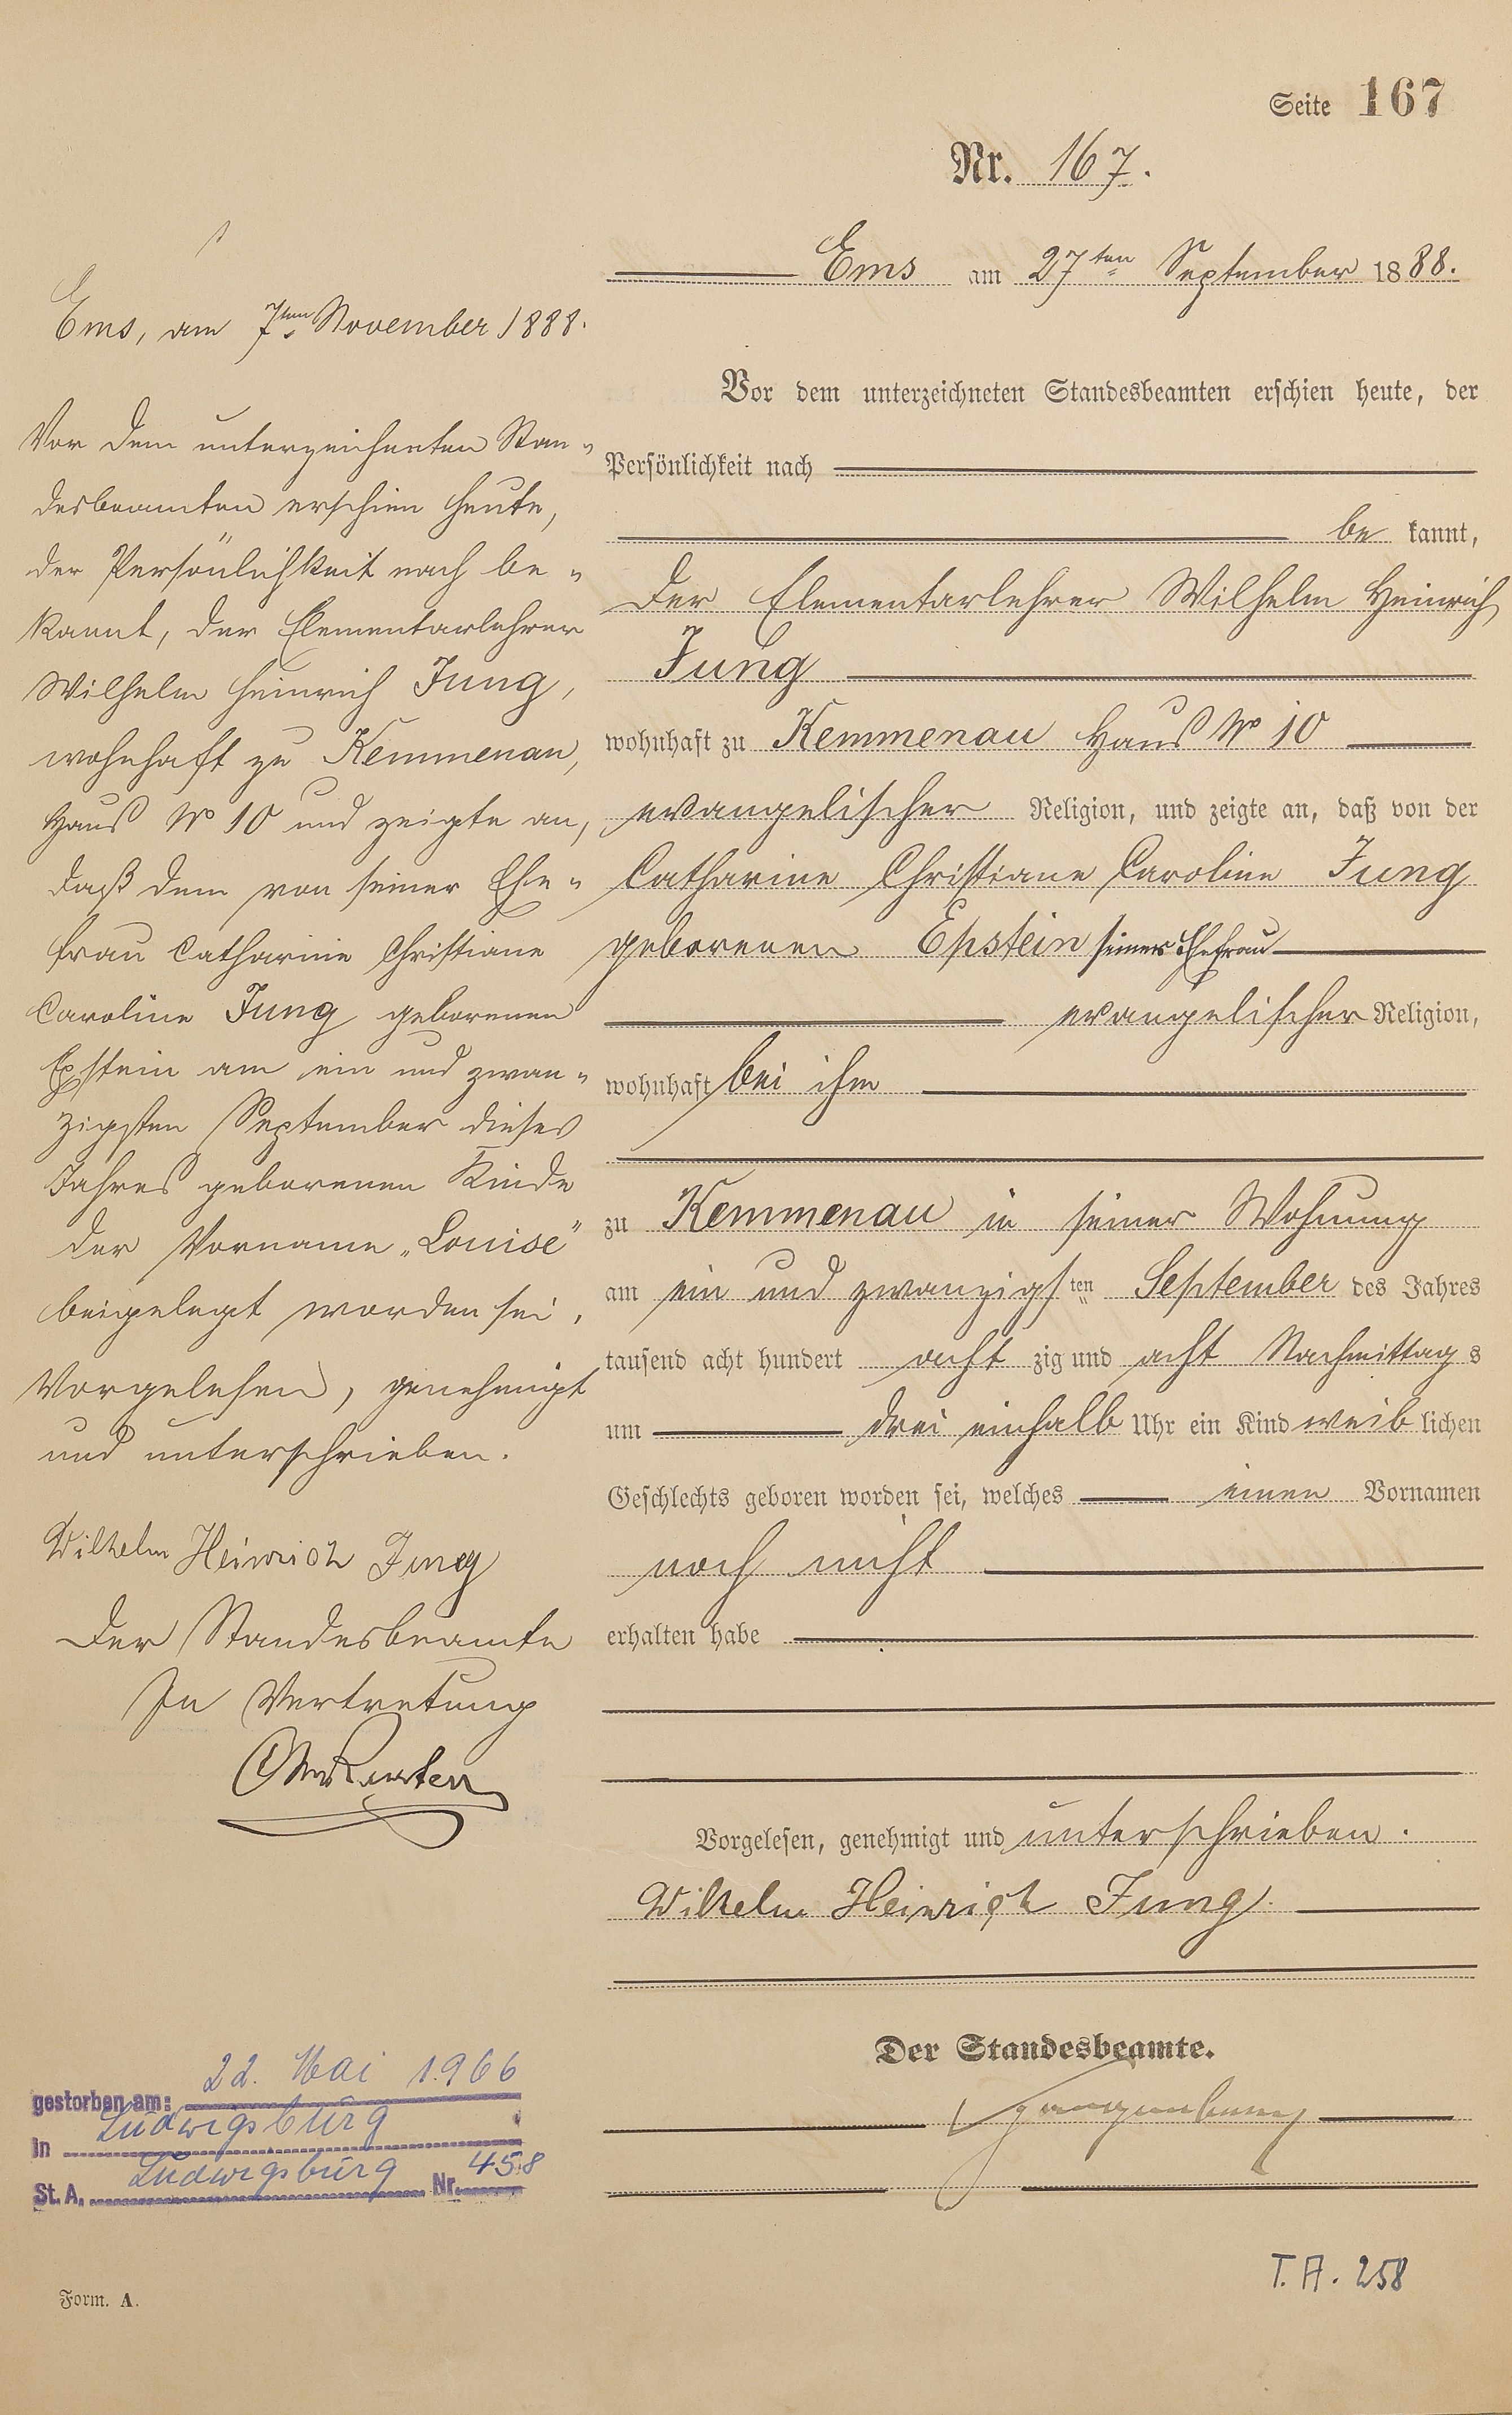 Seite 167
Nr. 167.
Ems am 27ten September 1888.
Vor dem unterzeichneten Standesbeamten erschien heute, der
Persönlichkeit nach
be kannt,
der Elementarlehrer Wilhelm Heinrich
Jung
wohnhaft zu Kemmenau Haus No 10
evangelischer Religion, und zeigte an, daß von der
Catharine Christiane Caroline Jung
geborenen Epstein seiner Ehefrau
evangelischer Religion,
wohnhaft bei ihm
zu Kemmenau in seiner Wohnung
am ein und zwanzigsten September des Jahres
tausend acht hundert acht zig und acht Nachmittags
um drei einhalb Uhr ein Kind weiblichen
Geschlechts geboren worden sei, welches einen Vornamen
noch nicht
erhalten habe
Vorgelesen, genehmigt und unterschrieben.
Wilhelm Heinrich Jung.
Der Standesbeamte.
T. A. 258
Ems, am 7ten November 1888.
Vor dem unterzeichneten Stan-
desbeamten erschien heute,
der Persönlichkeit nach be-
kannt, der Elementarlehrer
Wilhelm Heinrich Jung,
wohnhaft zu Kemmenau,
Haus No 10 und zeigte an,
daß dem von seiner Ehe-
frau Catharine Christiane
Caroline Jung geborenen
Epstein am ein und zwan-
zigsten September dieses
Jahres geborenen Kinde
der Vorname „Louise"
beigelegt worden sei.
Vorgelesen, genehmigt
und unterschrieben.
Wilhelm Heinrich Jung
Der Standesbeamte
In Vertretung
gestorben am: 22. Mai 1966
in Ludwigsburg
St. A. Ludwigsburg Nr. 458
Form. A.